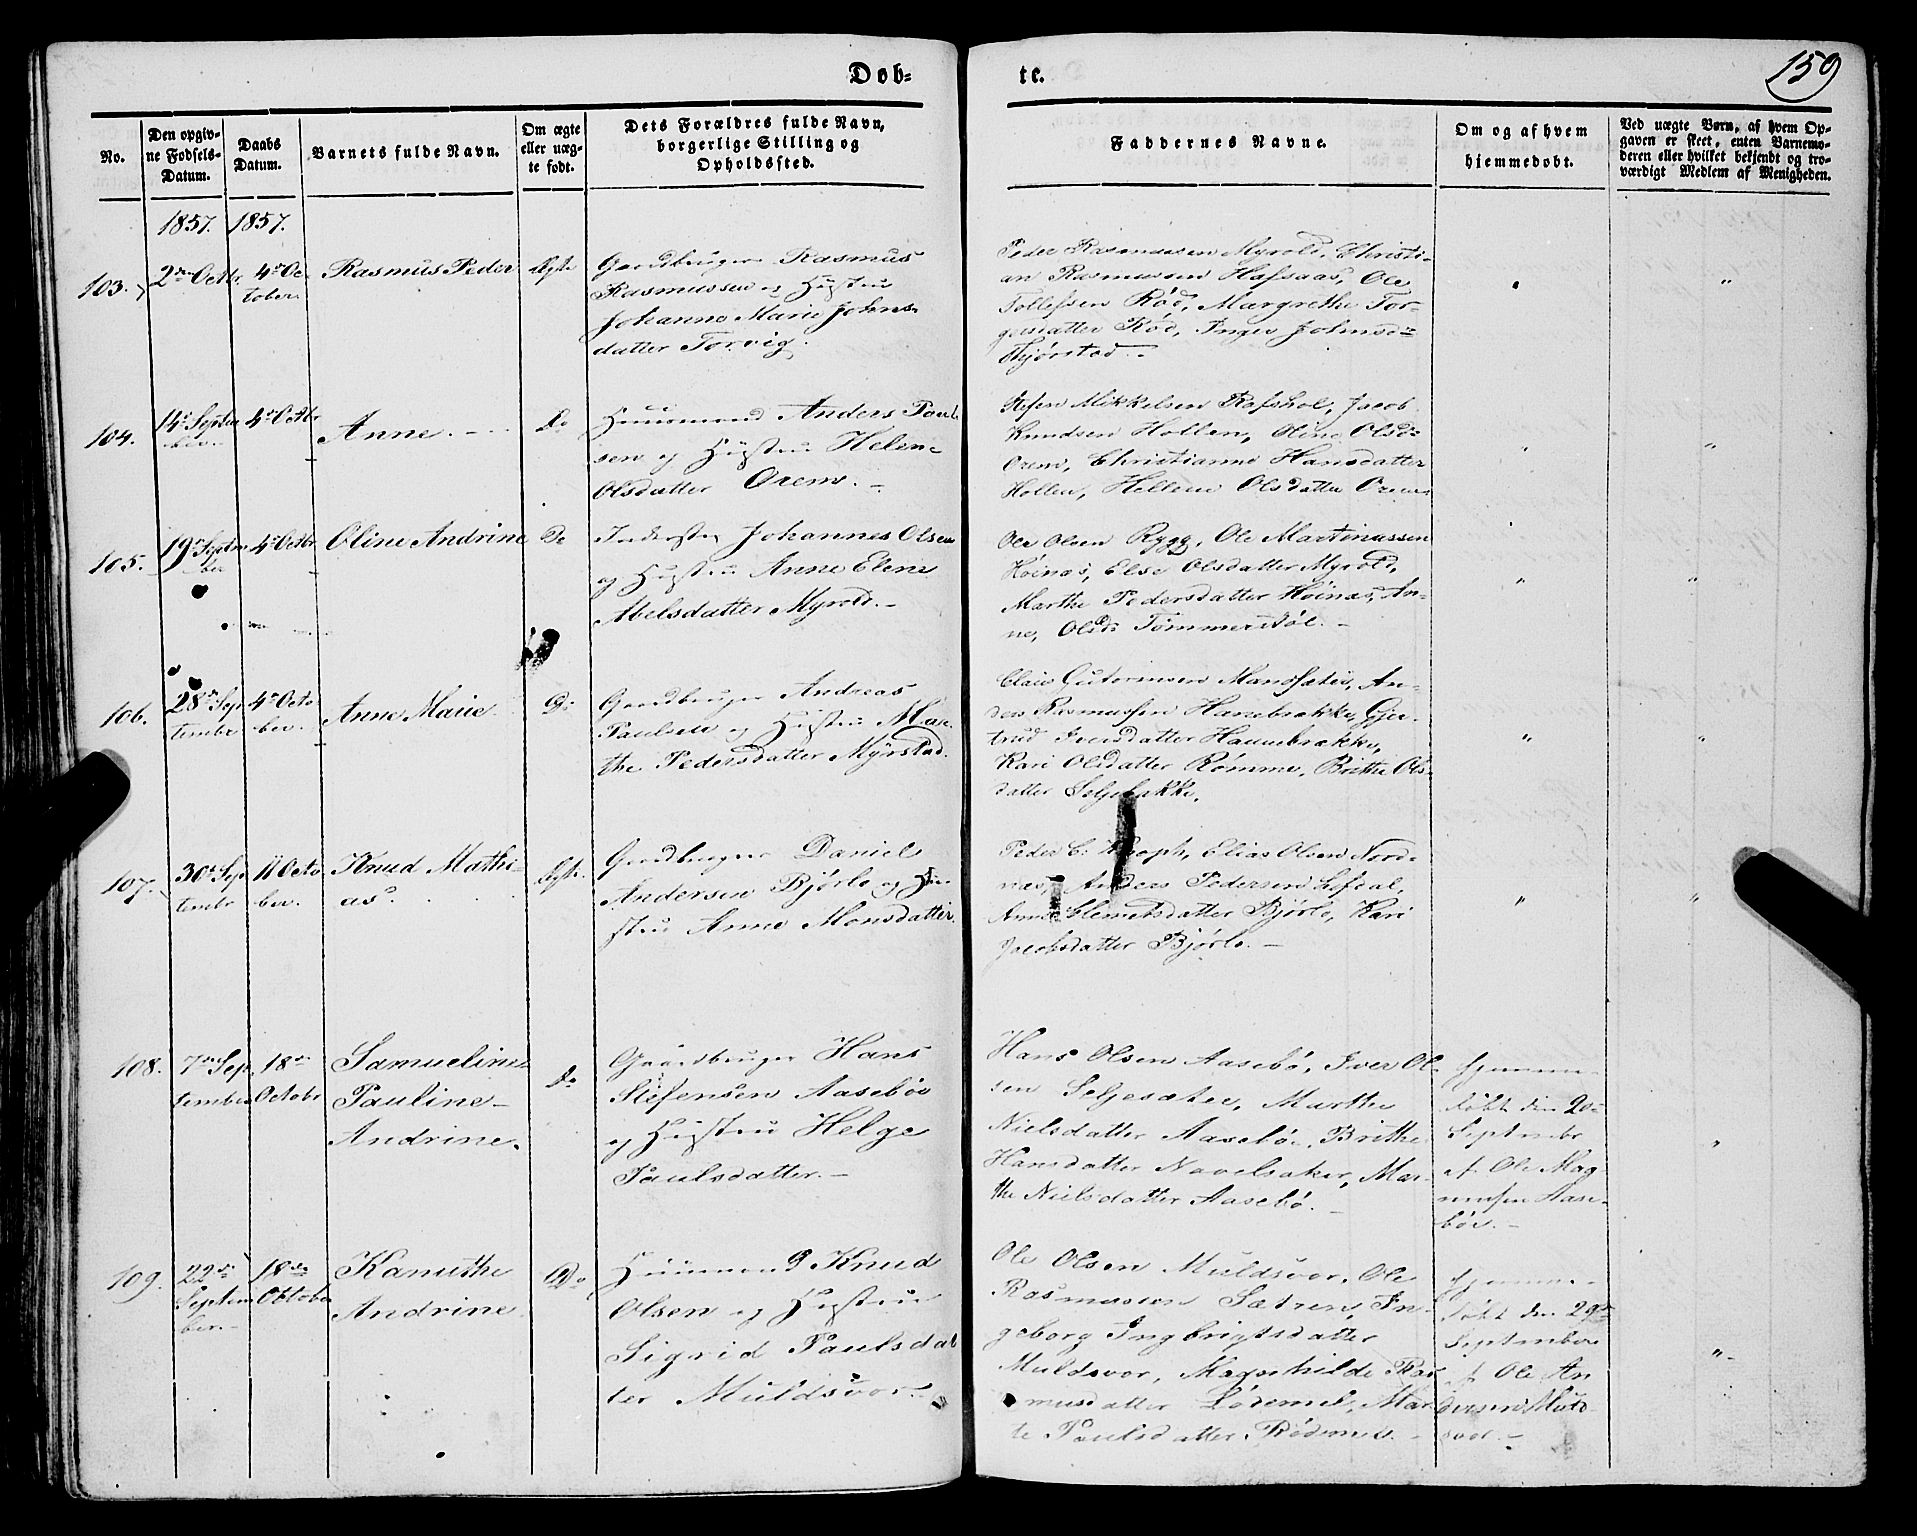 Døb-
te.
159
No.
Den opgiv-
ne Fødsels-
Datum.
Daabs
Datum.
Barnets fulde Navn.
Om ægte
eller uæg-
te født.
Dets Forældres fulde Navn,
borgerlige Stilling og
Opholdssted.
Faddernes Navne.
Om og af hvem
hjemmedøbt.
Ved uægte Børn, af hvem Op-
gaven er skeet, enten Barnemo-
deren eller hvilket bekjendt og tro-
værdigt Medlem af Menigheden.
1857.
1857.
103.
2den Octbr.
4de Oc-
tober
Rasmus Peder
Ægte
Gaardbruger Rasmus
Rasmussen og Hustru
Johanne Marie Johns-
datter Torvig.
Peder Rasmussen Myrold, Christi-
an Rasmussen Hafsaas, Ole
Tollefsen Rød, Margrethe Tor-
gersdatter Rød, Inger Johnsd:
104.
14de Septem
ber
4de Octbr
Anne.
Do
Huusmand Anders Paul-
sen og Hustru Helen-
Olsdatter Orem.
Stefen Mikkelsen Rafshol, Jacob
Knudsen Hollen, Oline Olsd:
Orem, Christianne Hansdatter
Hollen, Hellene Olsdatter Orem
105.
19de Septem
ber
4de Octbr
Oline Andrine
Do
Inderster Johannes Olsen
og Hustru Anne Elene
Abelsdatter Myrold.-
Ole Olsen Rygg, Ole Martinussen
Höinæs, Else Olsdatter Myrold,
Marthe Pedersdatter Höinæs, An-
ne, Olsd: Tømmerstöl.-
106.
28de Sep
tembr
4de Octo
ber.
Anne Marie
Do
Gaardbruger Andreas
Paulsen og Hustru Mar-
the Pedersdatter Myrstad.
Claus Gutormsen Mandsæter, An-
ders Rasmussen Hanebrække, Gjer-
trud Iversdatter Hannebrække,
Kari Olsdatter Rømme, Brithe Ols-
datter Seljebakke.
107.
30de Sep
tembr
11 Octo
ber.
Knud Mathi-
as.
Ægte.
Gaardbruger Daniel
Andersen Bjørlo og Hu-
stru Anne Monsdatter.
Peder C. Knoph, Elias Olsen Nord-
næs, Anders Pedersen Lofdal,
Anne Clemetsdatter Bjørlo, Kari
Jacobsdatter Bjørlo.-
108.
7de Sep
tember
18de
Octobr
Samueline
Pauline-
Andrine.
Do
Gaardbruger Hans
Stefensen Aasebøe
og Hustru Helge
Paulsdatter.-
Hans Olsen Aasebø, Iver Ol-
sen Seljesæter, Marthe
Nielsdatter Aasebø, Brithe
Hansdatter Navelsaker, Mar-
the Nielsdatter Aasebø.-
Hjemme-
døbt den 20de
Septembr
af Ole Mag
nussen Aase-
bøe.-
109.
22de
Septem
ber.-
18de
Oktober
Kanuthe
Andrine
Do
Huusmand Knud
Olsen og Hustru
Sigrid Paulsdat
ter Muldsvor
Ole Olsen Muldsvor, Ole
Rasmussen Sætren, In-
geborg Ingbrigtsdatter
Muldsvor, Magnhilde Ras-
musdatter Lødemel, Mar-
te Paulsdatter Rødemes.-
Hjemme-
døbt den 29de
September
af Ole An
dersen Muld-
svor.-